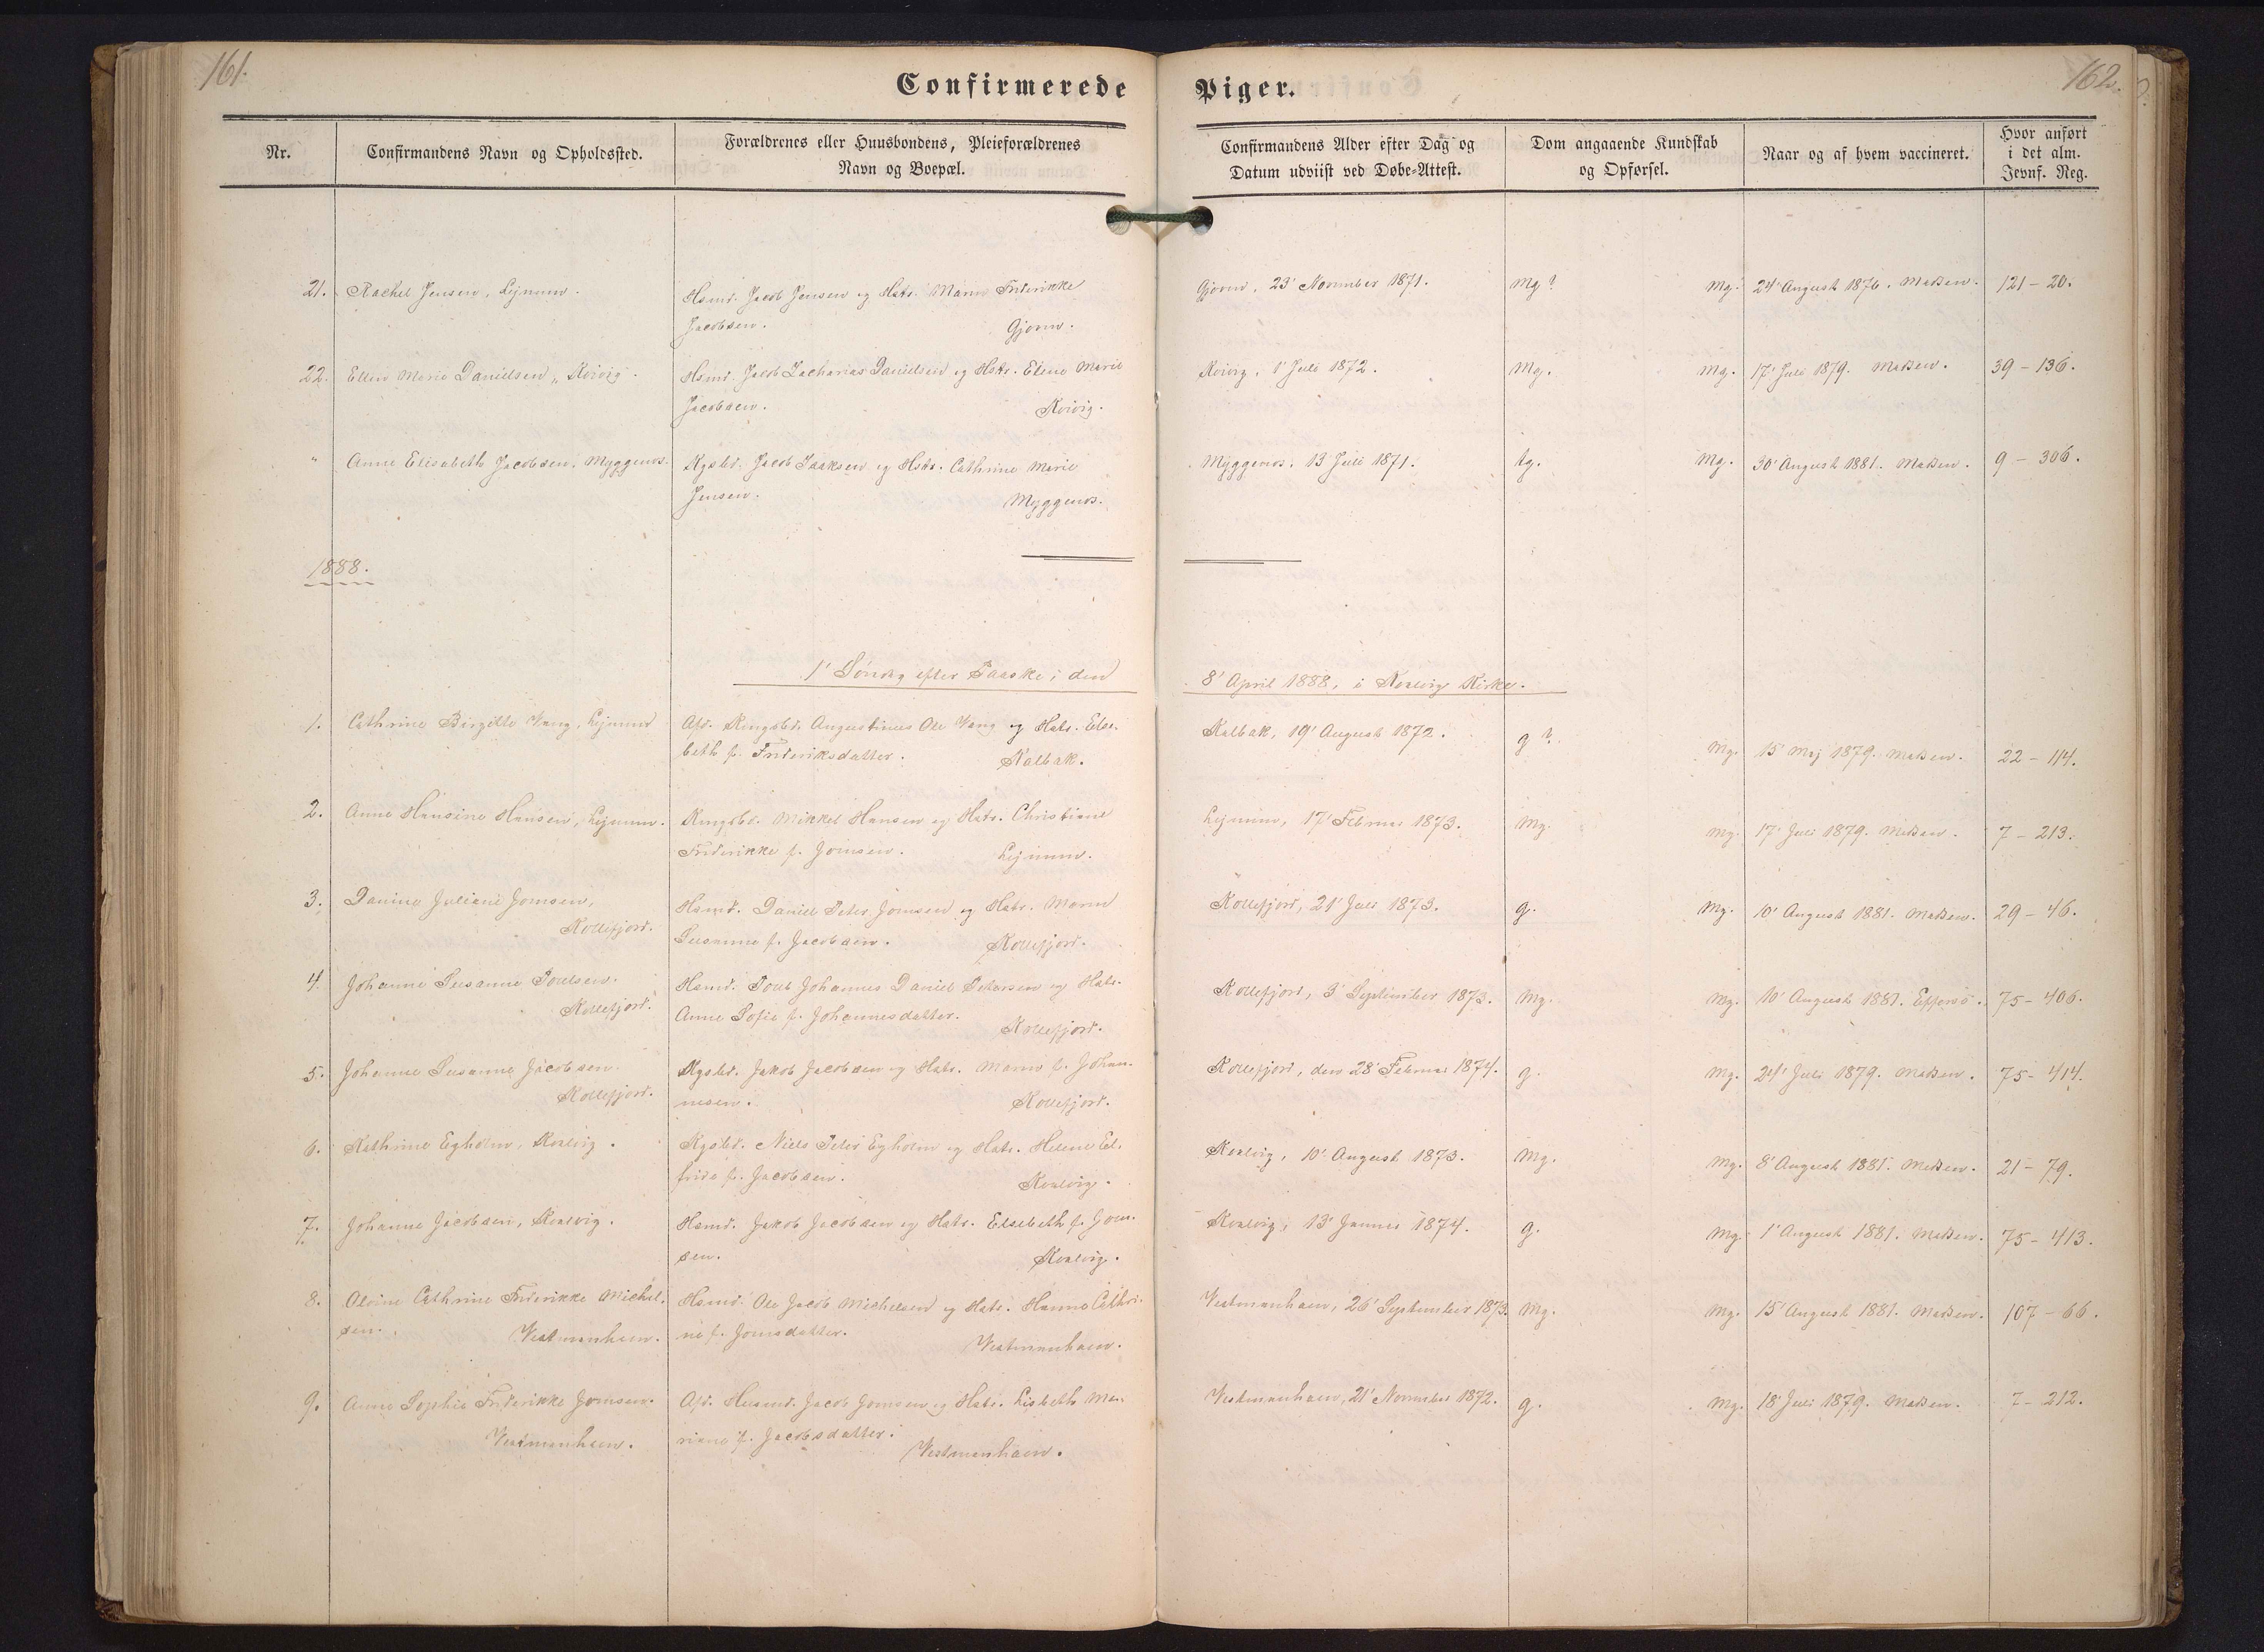 161.
162.
Confirmerede Piger.
Nr.
Confirmandens Navn og Opholdssted.
Forældrenes eller Huusbondens, Pleieforældrenes
Navn og Boepæl.
Confirmandens Alder efter Dag og
Datum udviist ved Døbe-Attest.
Dom angaaende Kundskab
og Opførsel.
Naar og af hvem vaccineret.
Hvor anført
i det alm.
Jevnf. Reg.
21. Rachel Jensen, Lejnum. Hsmd. Jacob Jensen og Hstr. Maren Friderikke Gjovn, 23' November 1871. mg? mg. 24' August 1876. Madsen. 121 - 20.
Jacobsen. Gjovn.
22. Ellen Marie Danielsen, Kvivig. Hsmd. Jacob Zacharias Danielsen og Hstr. Elene Marie Kvivig, 1' Juli 1872. mg. mg. 17' Juli 1879. Madsen. 39 - 136.
Jacobsen. Kvivig.
" Anne Elisabeth Jacobsen, Myggenæs. Kgsbd. Jacob Isaksen og Hstr. Cathrine Marie Myggenæs, 13' Juli 1871. tg. mg. 30' August 1881. Madsen. 9 - 306.
Jensen. Myggenæs.
1888.
1' Søndag efter Paaske, den 8' April 1888, i Kvalvig Kirke.
1. Cathrine Birgitte Vang, Lejnum Afd. Kongsbd. Augustinus Ole Vang og Hstr. Else- Kalbak, 19' August 1872. g?. mg. 15' Maj 1879. Madsen. 22 - 114.
beth f. Frideriksdatter. Kalbak.
2. Anne Hansine Hansen, Lejnum. Kongsbd. Mikkel Hansen og Hstr. Christiane Lejnum, 17' Februar 1873. mg. mg. 17' Juli 1879. Madsen. 7 - 213.
Friderikke f. Joensen. Lejnum.
3. Danine Juliane Joensen, Hsmd. Daniel Peter Joensen og Hstr. Maren Kollefjord, 21' Juli 1873. g. mg. 10' August 1881. Madsen. 29 - 46.
Kollefjord. Susanne f. Jacobsen. Kollefjord.
4. Johanne Susanne Poulsen. Hsmd. Poul Johannes Daniel Petersen og Hstr. Kollefjord, 3' September 1873. mg. mg. 10' August 1881. Effersø. 75 - 406.
Kollefjord. Anne Sofie f. Johannesdatter. Kollefjord.
5. Johanne Susanne Jacobsen. Kgsbd. Jakob Jacobsen og Hstr. Maren f. Johan- Kollefjord, den 28' Februar 1874. g. mg. 24' Juli 1879. Madsen. 75 - 414.
Kollefjord. nesen. Kollefjord.
6. Kathrine Egholm, Kvalvig. Kgsbd. Niels Peter Egholm og Hstr. Helene El- Kvalvig, 10' August 1873. mg. mg. 8' August 1881. Madsen. 21 - 79.
frida f. Jacobsen. Kvalvig.
7. Johanne Jacobsen, Kvalvig. Hsmd. Jakob Jacobsen og Hstr. Elsebeth f. Joen- Kvalvig, 13' Januar 1874. g. mg. 1' August 1881. Madsen. 75 - 413.
sen. Kvalvig.
8. Olvine Cathrine Friderikke Michel- Hsmd. Ole Jacob Michelsen og Hstr. Hanne Cathri- Vestmanhavn, 26' September 1873. mg. mg. 15' August 1881. Madsen. 107 - 66.
sen. Vestmanhavn. ne f. Joensdatter. Vestmanhavn.
9. Anne Sophie Friderikke Joensen. Afd. Husmd. Jacob Joensen og Hstr. Lisbeth Ma- Vestmanhavn, 21' November 1872. g. mg. 18' Juli 1879. Madsen. 7 - 212.
Vestmanhavn. riane f. Jacobsdatter. Vestmanhavn.